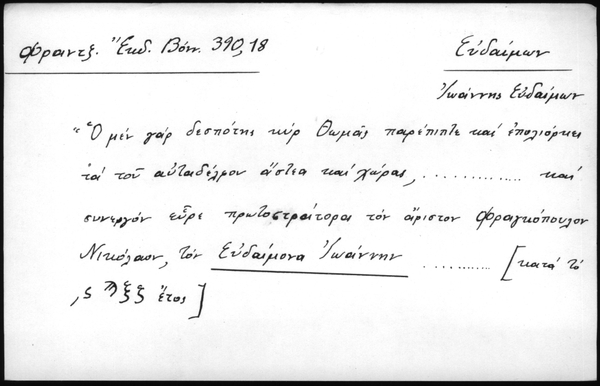 Φραντζ. Ἔκδ. Βόνν. 390,18
Εὐδαίμων
Ἰωάννης Εὐδαίμων
"Ὁ μέν γάρ δεσπότης κύρ Θωμᾶς παρέπιπτε καί ἐπολιόρκει
τά τοῦ αὐταδέλφου ἄστεα καί χώρας, .............. καί
συνεργόν εὗρε πρωτοστράτορα τόν ἄριστον Φραγκόπουλον
Νικόλαον, τόν Εὐδαίμονα Ἰωάννην ........... [κατά τό
͵ϛ ϡξξ ἔτος]